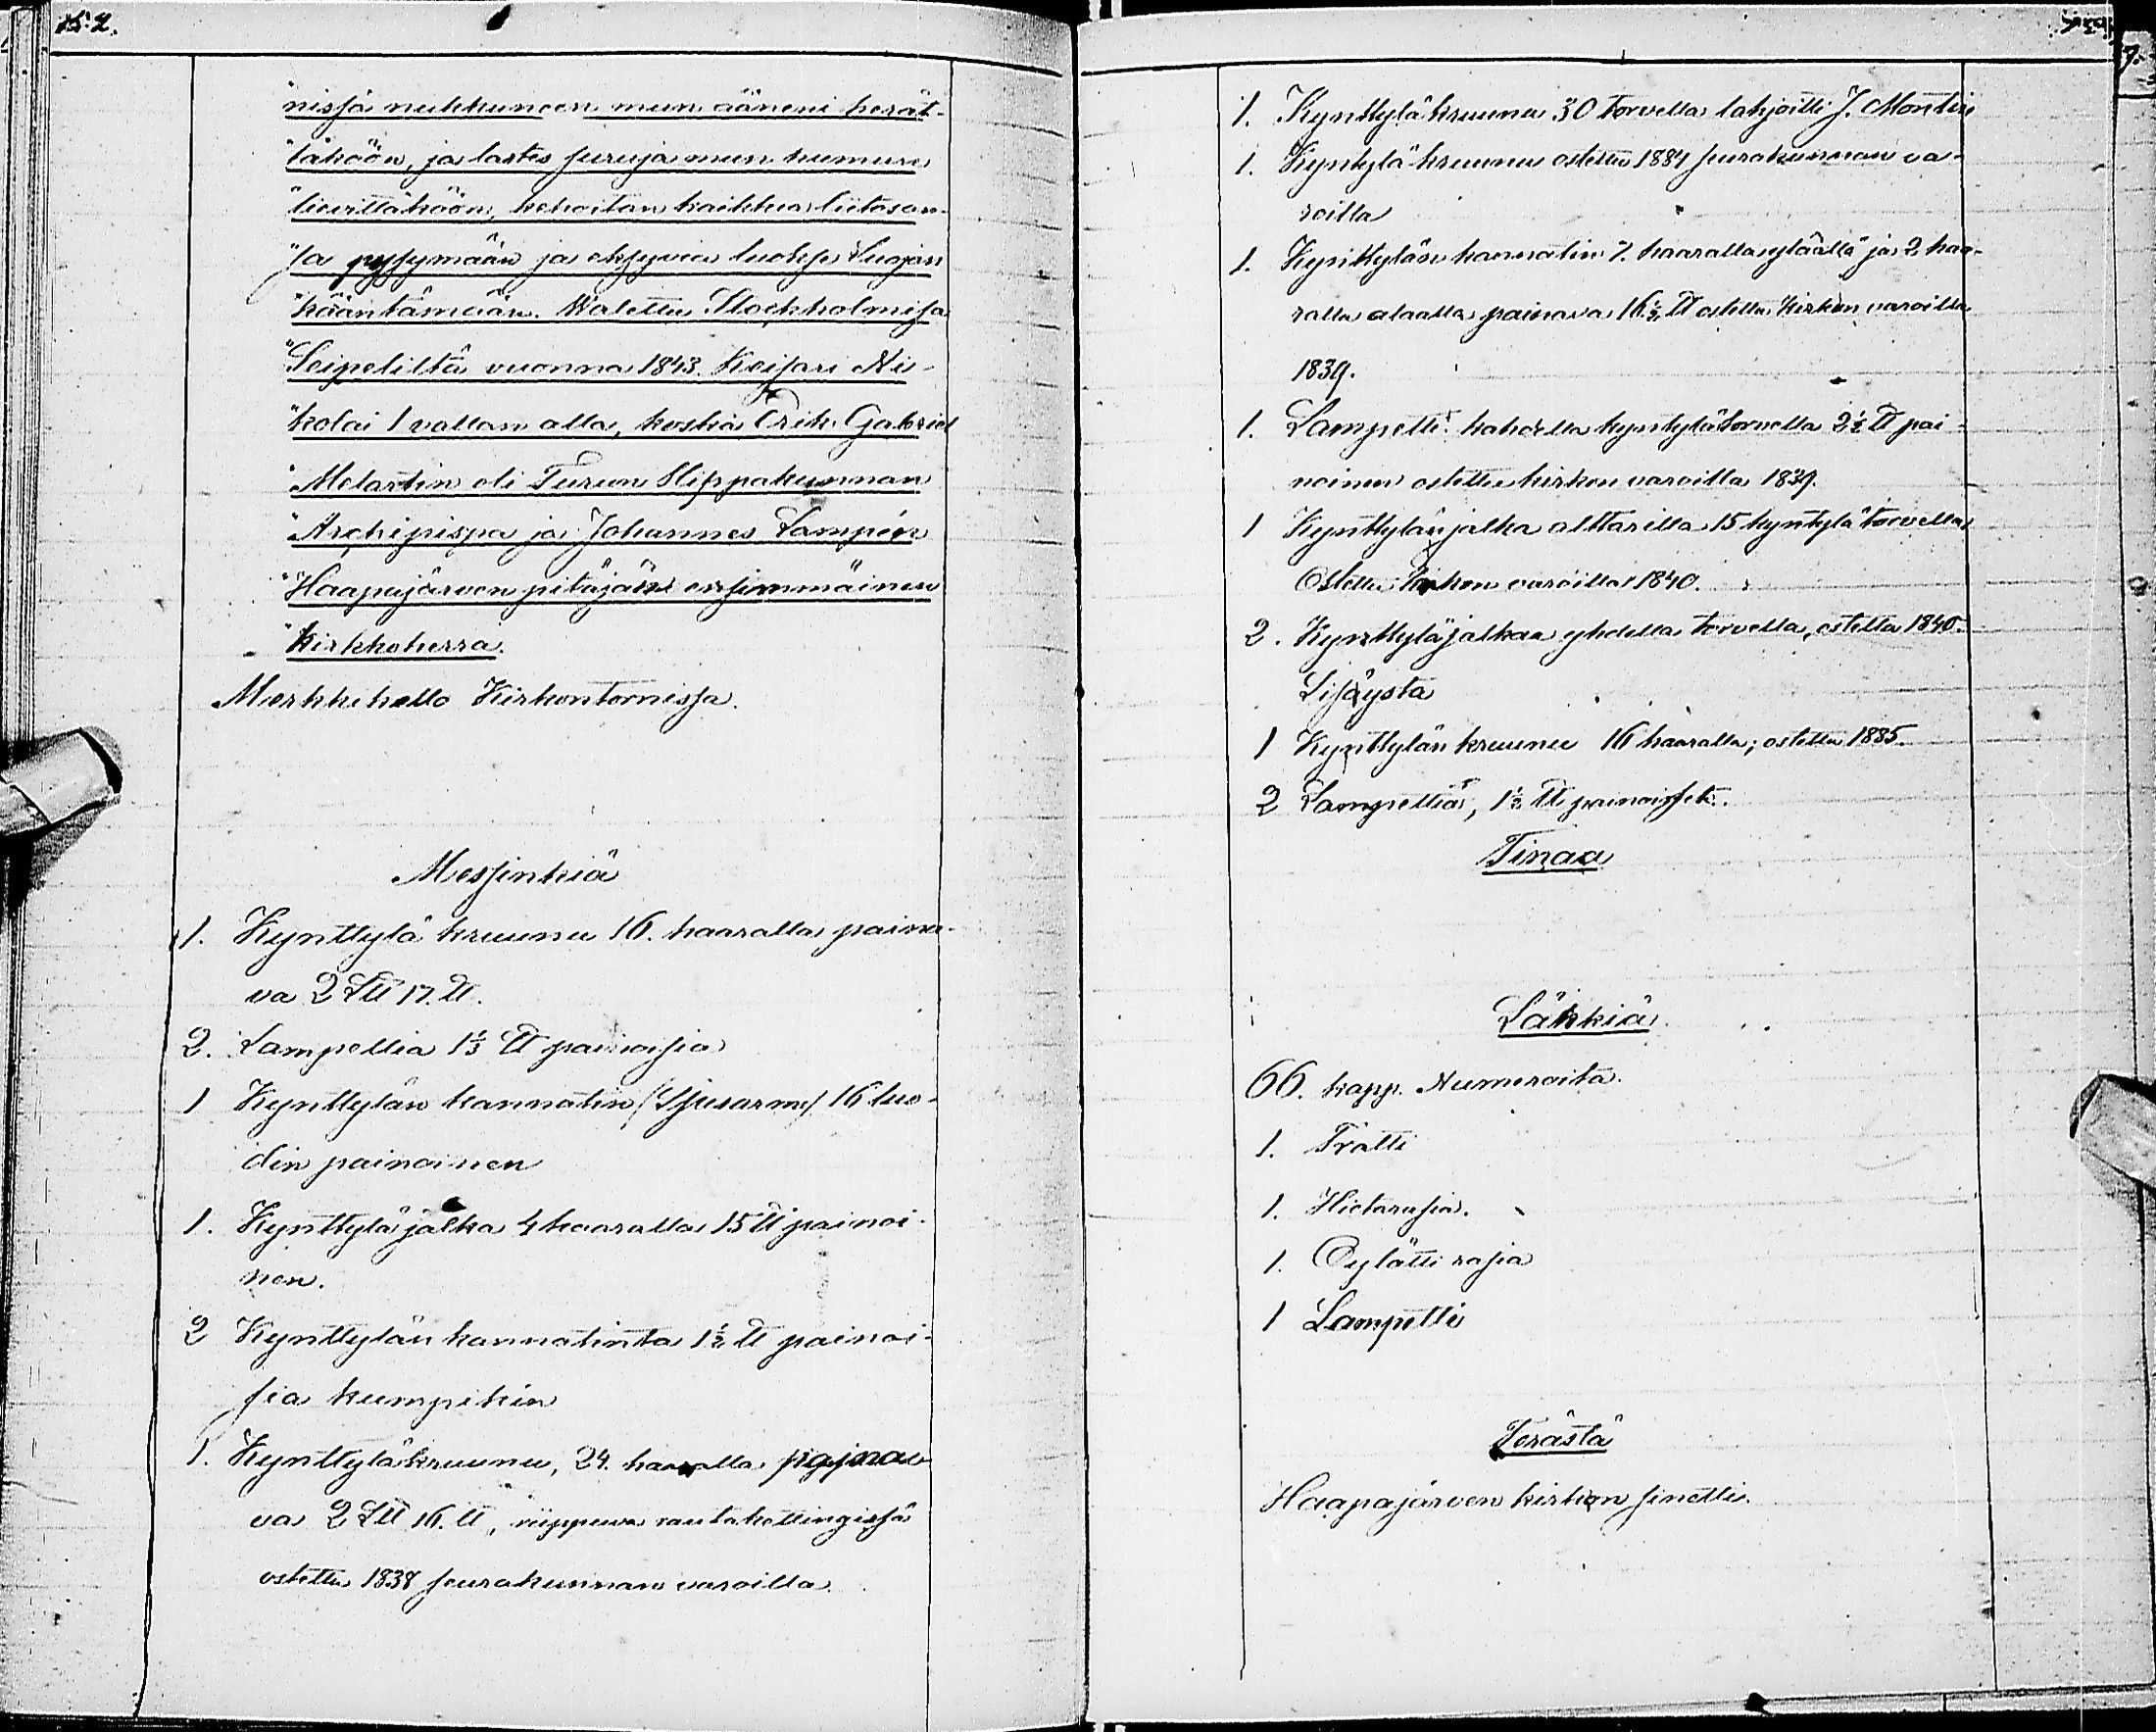 152.
"nissä nukkuneen mun ääneni herät-
"täköön, ja lastes suruja mun kumuni
"lievittäköön, kehoitan kaikkia liitosan-
"sa pysymään ja eksyviä luokse Suojan
"kääntämään. Walettu Stockholmisa
"Seipeliltä vuonna 1843. Keisari Ni-
"kolai I vallan alla, koska Erik Gabriel
"Melartin oli Turun Hippakunnan
"Archipispa ja Johannes Lampén
"Haapajärven pitäjän ensimmäinen
"Kirkkoherra.
Merkkikello Kirkontornissa.
Messinkiä
1. Kynttylä kruunu 16. haaralla paina-
va 2 L℔ 17. ℔.
2. Lampettia 1⅓ ℔ painosia
1 Kynttylän kannatin (Ljusarm) 16 luo-
din painoinen
1. Kynttylä jalka 4 haaralla 15 ℔ painoi-
nen.
2 Kynttylän kannatinta 1½ ℔ painoi-
sia kumpikin
1. Kynttylä kruunu, 24. haaralla paina-
va 2 L℔ 16. ℔, riippuva rautakettingissä
ostettu 1838 seurakunnan varoilla.
1. Kynttyläkruunu 30 torvella lahjoitti J. Montin
1. Kyntylä kruunu ostettu 1884 seurakunnan va-
roilla
1. Kynttylän kannatin 7. haaralla yläällä ja 2 haa-
ralla alaalla painava 16½ ℔ ostettu Kirkon varoilla
1839.
1. Lampetti kahdella kyntylätorvella 2½ ℔ pai-
noinen ostettu kirkon varoilla 1839.
1 Kynttylänjalka alttarilla 15 kyntylätorvella
Ostettu kirkon varoilla 1840.
2. Kynttyläjalkaa yhdellä torvella, ostettu 1840.
Lisäystä
1 Kynttylän kruunu 16 haaralla; ostettu 1885.
2 Lampettia, 1½ ℔ painoiset.
Tinaa
Läkkiä
66. kapp. Numeroita.
1. Tratti
1. Hietarasia.
1. Öylätti rasia
1 Lampetti
Terästä
Haapajärven kirkon sinetti.